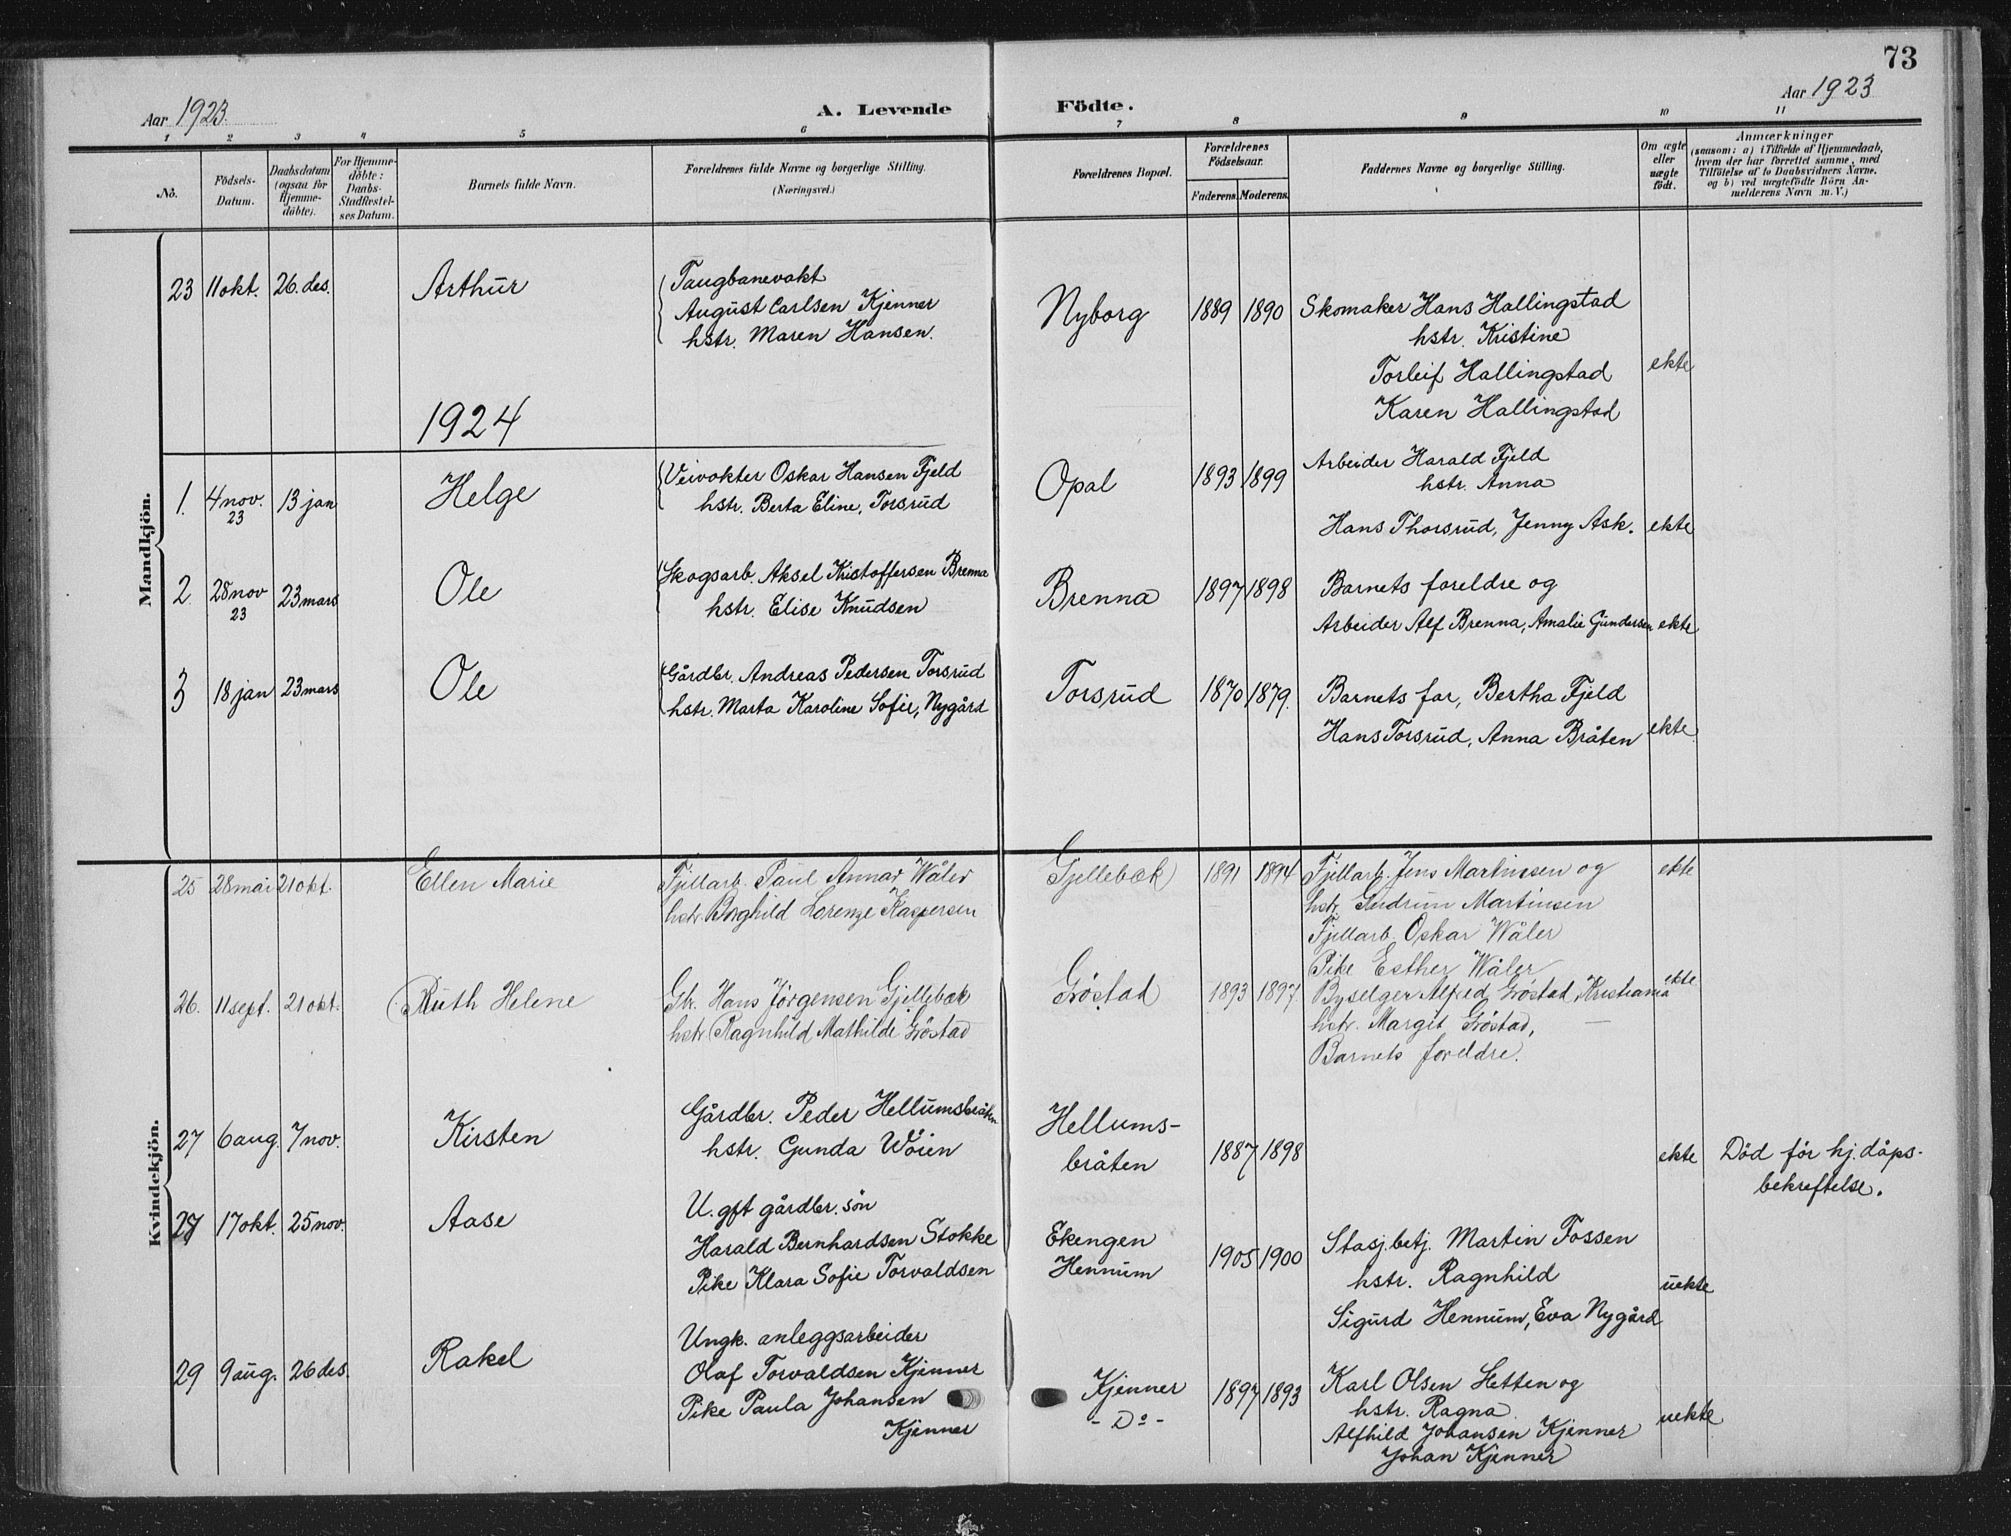 73
Aar 1923 A. Levende Födte. Aar 1923
1 2 3 4 5 6 7 8 9 10 11
No. Födsels-Datum. Daabsdatum (ogsaa for Hjemmedöbte). For Hjemmedöbte: Daabs-Stadfæstelses Datum. Barnets fulde Navn. Forældrenes fulde Navne og borgerlige Stilling. (Næringsvei.) Forældrenes Bopæl. Forældrenes Födselsaar. Faderens. Moderens. Faddernes Navne og borgerlige Stilling. Om ægte eller uægte födt. Anmærkninger (saasom: a) i Tilfælde af Hjemmedaab, hvem der har forrettet samme, med Tilföielse af to Daabsvidners Navne, og b) ved uægtefödte Börn Anmelderens Navn m. V.)
Mandkjön.
23 11 okt. 26. des. Arthur
Taugbanevakt
August Carlsen Kjenner
hstr. Maren Hansen.
Nyborg 1889 1890
Skomaker Hans Hallingstad
hstr. Kristine
Torleif Hallingstad
Karen Hallingstad
ekte
1924
1. 4 nov. 23 13 jan Helge
Veivokter Oskar Hansen Fjeld
hstr. Berta Eline, Torsrud
Opal 1893 1899
Arbeider Harald Fjeld
hstr. Anna
Hans Thorsrud, Jenny Ask.
ekte
2. 28 nov 23 23 mars Ole
Skogsarb. Aksel Kristoffersen Brenna
hstr. Elise Knudsen
Brenna 1897 1898
Barnets foreldre og
Arbeider Alf Brenna, Amalie Gundersen
ekte
3 18 jan 23 mars Ole
Gårdbr. Andreas Pedersen Torsrud
hstr. Marta Karoline Sofie, Nygård
Torsrud 1870 1879.
Barnets far, Bertha Fjeld
Hans Torsrud, Anna Bråten
ekte
Kvindekjön.
25 28 mai 21 okt. Ellen Marie
Fjellarb. Paul Annar Wåler
hstr. Borghild Lorenze Kaspersen
Gjellebæk 1891 1894
Fjellarb. Jens Martinsen og
hstr. Gudrun Martinsen
Fjellarb. Oskar Wåler
Pike Esther Wåler
ekte
26. 11 sept. 21 okt. Ruth Helene
Gbr. Hans Jørgensen Gjellebæk
hstr. Ragnhild Mathilde Grøstad
Grøstad 1893 1897
Byselger Alfred Grøstad, Kristiania
hstr. Margit Grøstad, —
Barnets foreldre.
ekte
27 6 aug. 7 nov. Kirsten
Gårdbr. Peder Hellumsbråten
hstr. Gunda Wöien
Hellums-
bråten
1887 1898
ekte
Död för hj. dåps-
bekreftelse.
28 17 okt. 25 nov. Aase
U.gft gårdbr. sön
Harald Bernhardsen Stokke
Pike Klara Sofie Torvaldsen
Ekengen
Hennum
1905 1900
Stasj.betj. Martin Fossen
hstr. Ragnhild
Sigurd Hennum, Eva Nygård
uekte
29 9 aug. 26 des. Rakel
Ungk. anleggsarbeider
Olaf Torvaldsen Kjenner
Pike Paula Johansen
Kjenner
Kjenner
- Do -
1897 1893
Karl Olsen Hetten og
hstr. Ragna
Alfhild Johansen Kjenner
Johan Kjenner
uekte